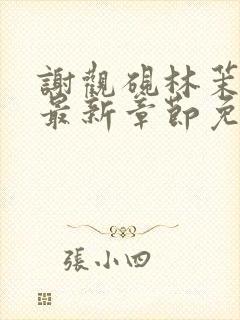 謝觀硯林茉
最新章節免
張小四